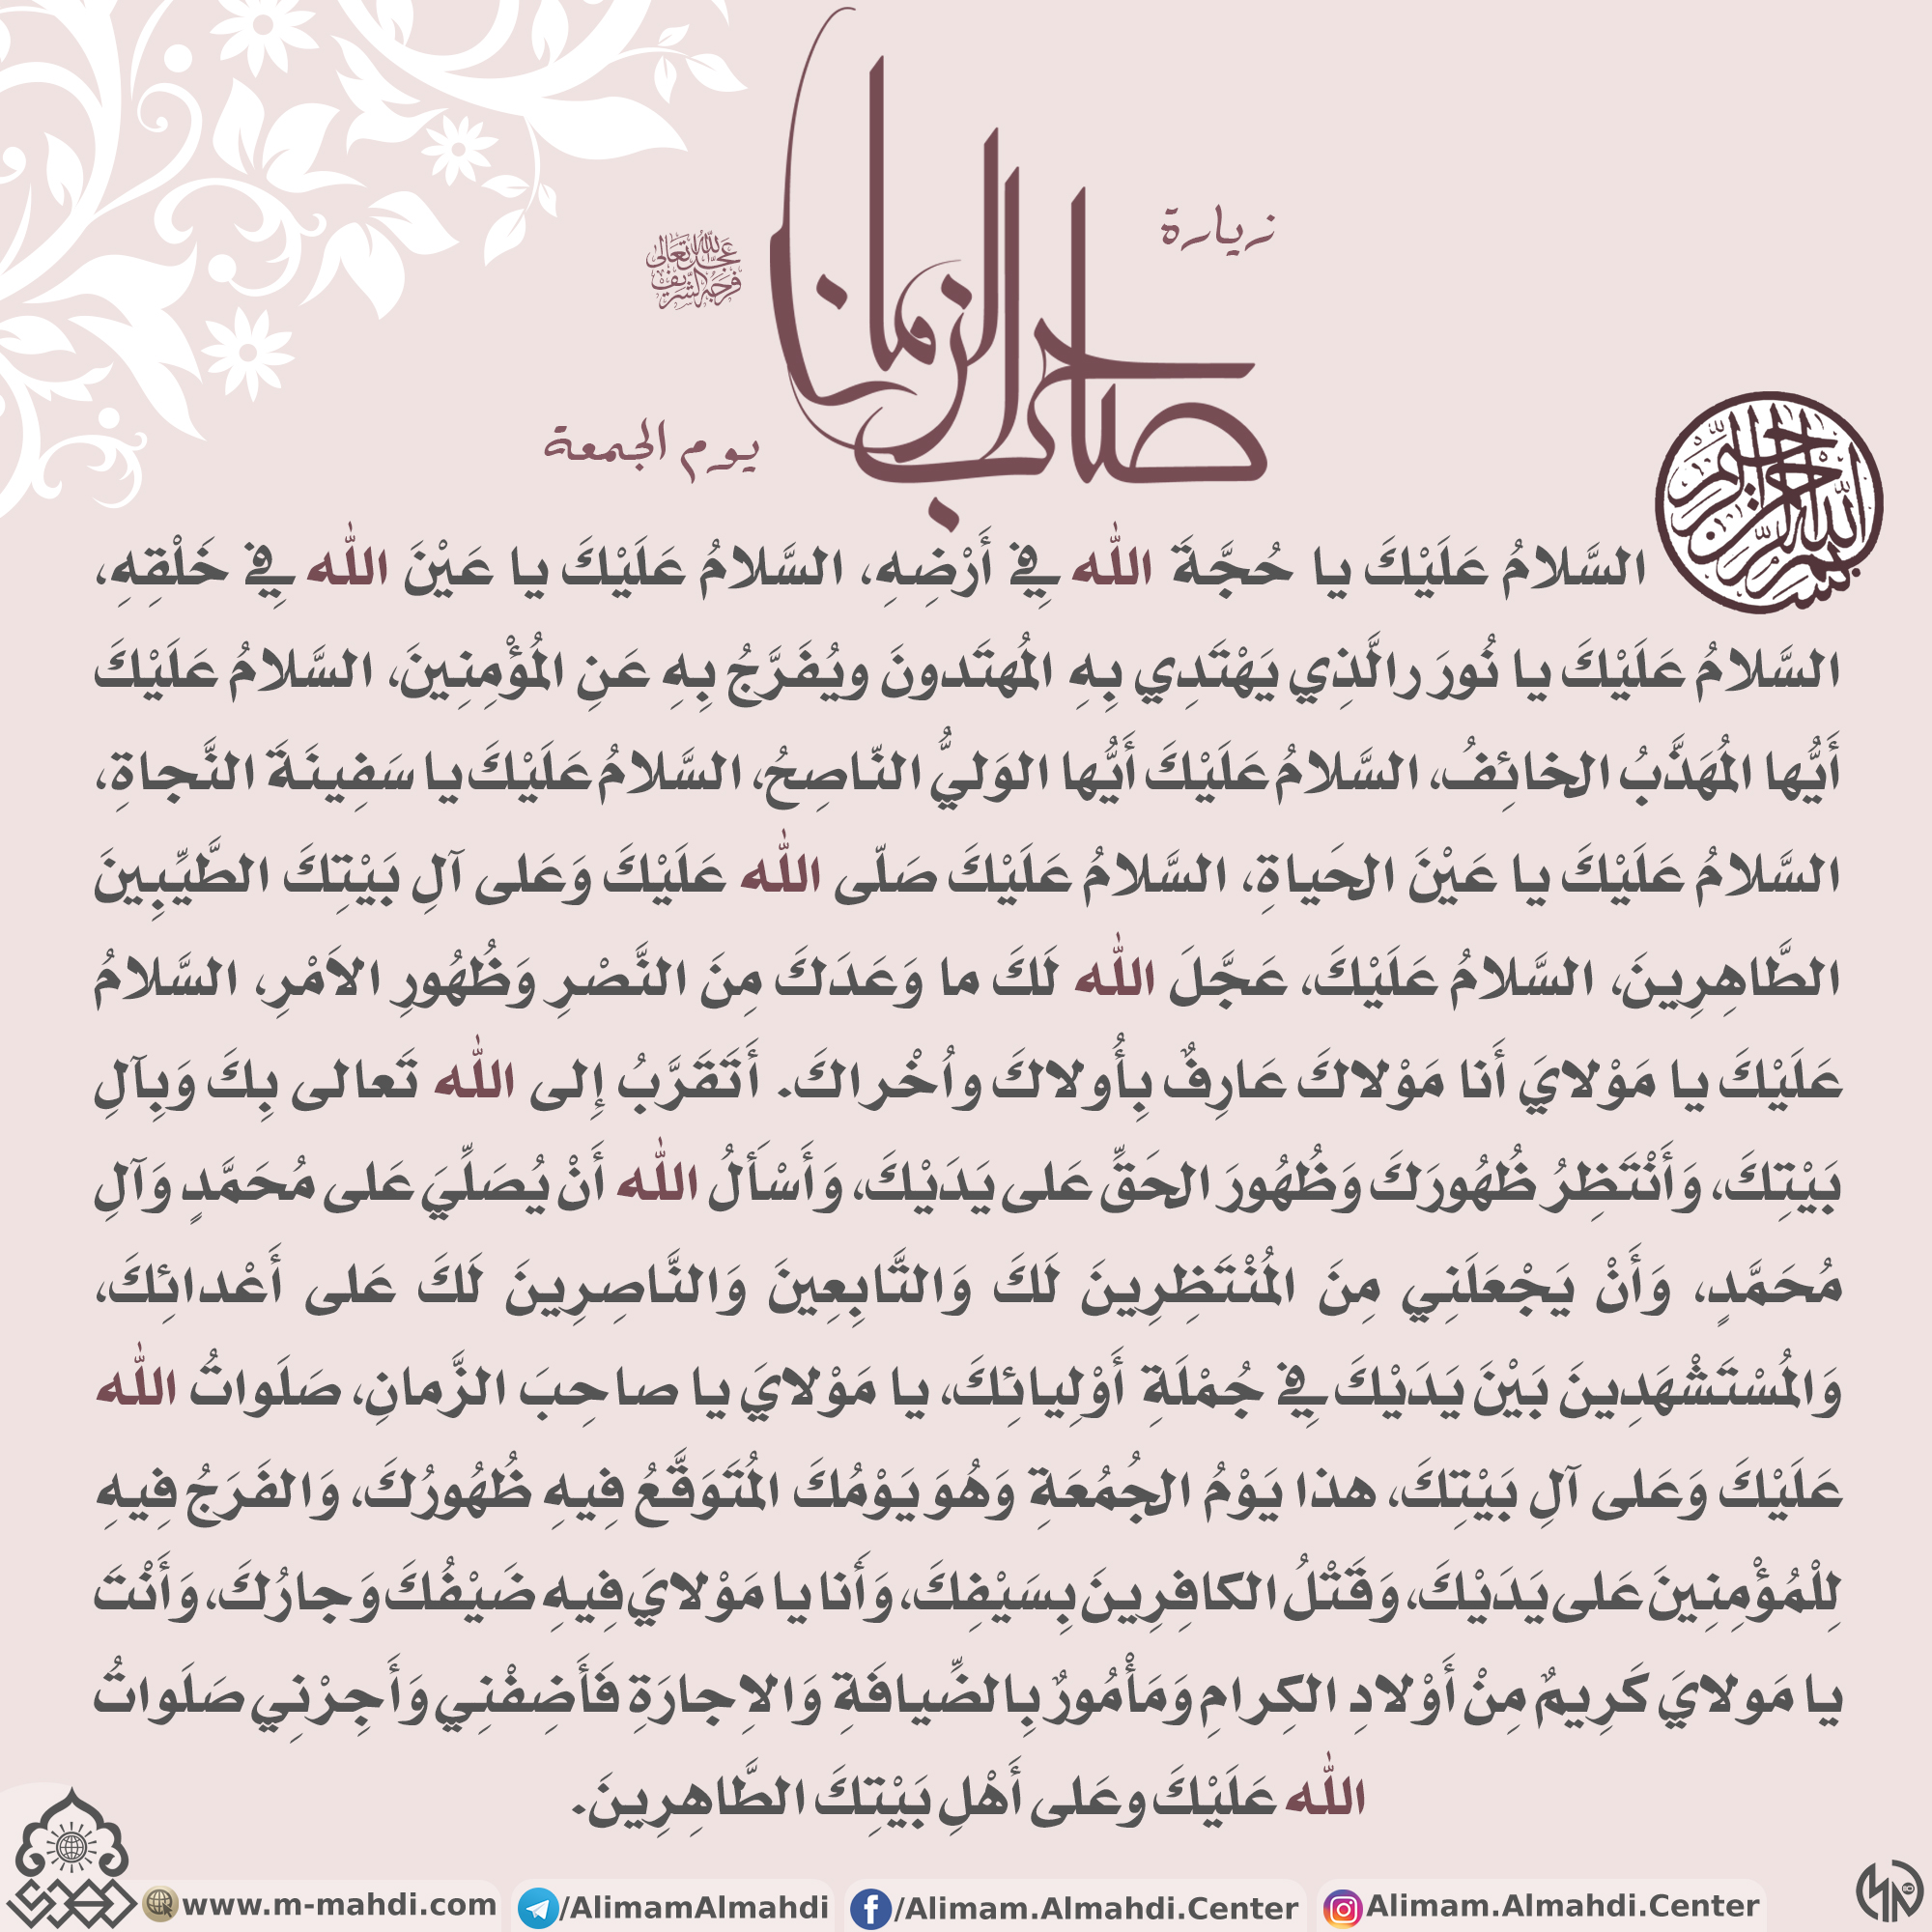 زيارة
صاحب الزمان
عجل الله تعالى فرجه الشريف
يوم الجمعة
بسم الله الرحمن الرحيم
السَّلامُ عَلَيْكَ يا حُجَّةَ الله فِي أَرْضِهِ، السَّلامُ عَلَيْكَ يا عَيْنَ الله فِي خَلْقِهِ،
السَّلامُ عَلَيْكَ يا نُورَ رالَّذِي يَهْتَدِي بِهِ المُهتَدونَ ويُفَرَّجُ بِهِ عَنِ المُؤْمِنِينَ، السَّلامُ عَلَيْكَ
أَيُّها المُهَذَّبُ الخائِفُ، السَّلامُ عَلَيْكَ أَيُّها الوَليُّ النّاصِحُ، السَّلامُ عَلَيْكَ يا سَفِينَةَ النَّجاةِ،
السَّلامُ عَلَيْكَ يا عَيْنَ الحَياةِ، السَّلامُ عَلَيْكَ صَلّى الله عَلَيْكَ وَعَلى آلِ بَيْتِكَ الطَّيِّبِينَ
الطَّاهِرِينَ، السَّلامُ عَلَيْكَ، عَجَّلَ الله لَكَ ما وَعَدَكَ مِنَ النَّصْرِ وَظُهُورِ الاَمْرِ، السَّلامُ
عَلَيْكَ يا مَوْلايَ أَنا مَوْلاكَ عَارِفٌ بِأُولاكَ واُخْراكَ. أَتَقَرَّبُ إِلى الله تَعالى بِكَ وَبِآلِ
بَيْتِكَ، وَأَنْتَظِرُ ظُهُورَكَ وَظُهُورَ الحَقِّ عَلى يَدَيْكَ، وَأَسْأَلُ الله أَنْ يُصَلِّيَ عَلى مُحَمَّدٍ وَآلِ
مُحَمَّدٍ، وَأَنْ يَجْعَلَنِي مِنَ المُنْتَظِرِينَ لَكَ وَالتَّابِعِينَ وَالنَّاصِرِينَ لَكَ عَلى أَعْدائِكَ،
وَالمُسْتَشْهَدِينَ بَيْنَ يَدَيْكَ فِي جُمْلَةِ أَوْلِيائِكَ، يا مَوْلايَ يا صاحِبَ الزَّمانِ، صَلَواتُ الله
عَلَيْكَ وَعَلى آلِ بَيْتِكَ، هذا يَوْمُ الجُمُعَةِ وَهُوَ يَوْمُكَ المُتَوَقَّعُ فِيهِ ظُهُورُكَ، وَالفَرَجُ فِيهِ
لِلْمُؤْمِنِينَ عَلى يَدَيْكَ، وَقَتْلُ الكافِرِينَ بِسَيْفِكَ، وَأَنا يا مَوْلايَ فِيهِ ضَيْفُكَ وَجارُكَ، وَأَنْتَ
يا مَولايَ كَرِيمٌ مِنْ أَوْلادِ الكِرامِ وَمَأْمُورٌ بِالضِّيافَةِ وَالاِجارَةِ فَأَضِفْنِي وَأَجِرْنِي صَلَواتُ
الله عَلَيْكَ وعَلى أَهْلِ بَيْتِكَ الطَّاهِرِينَ.
www.m-mahdi.com
/AlimamAlmahdi
/Alimam.Almahdi.Center
Alimam.Almahdi.Center